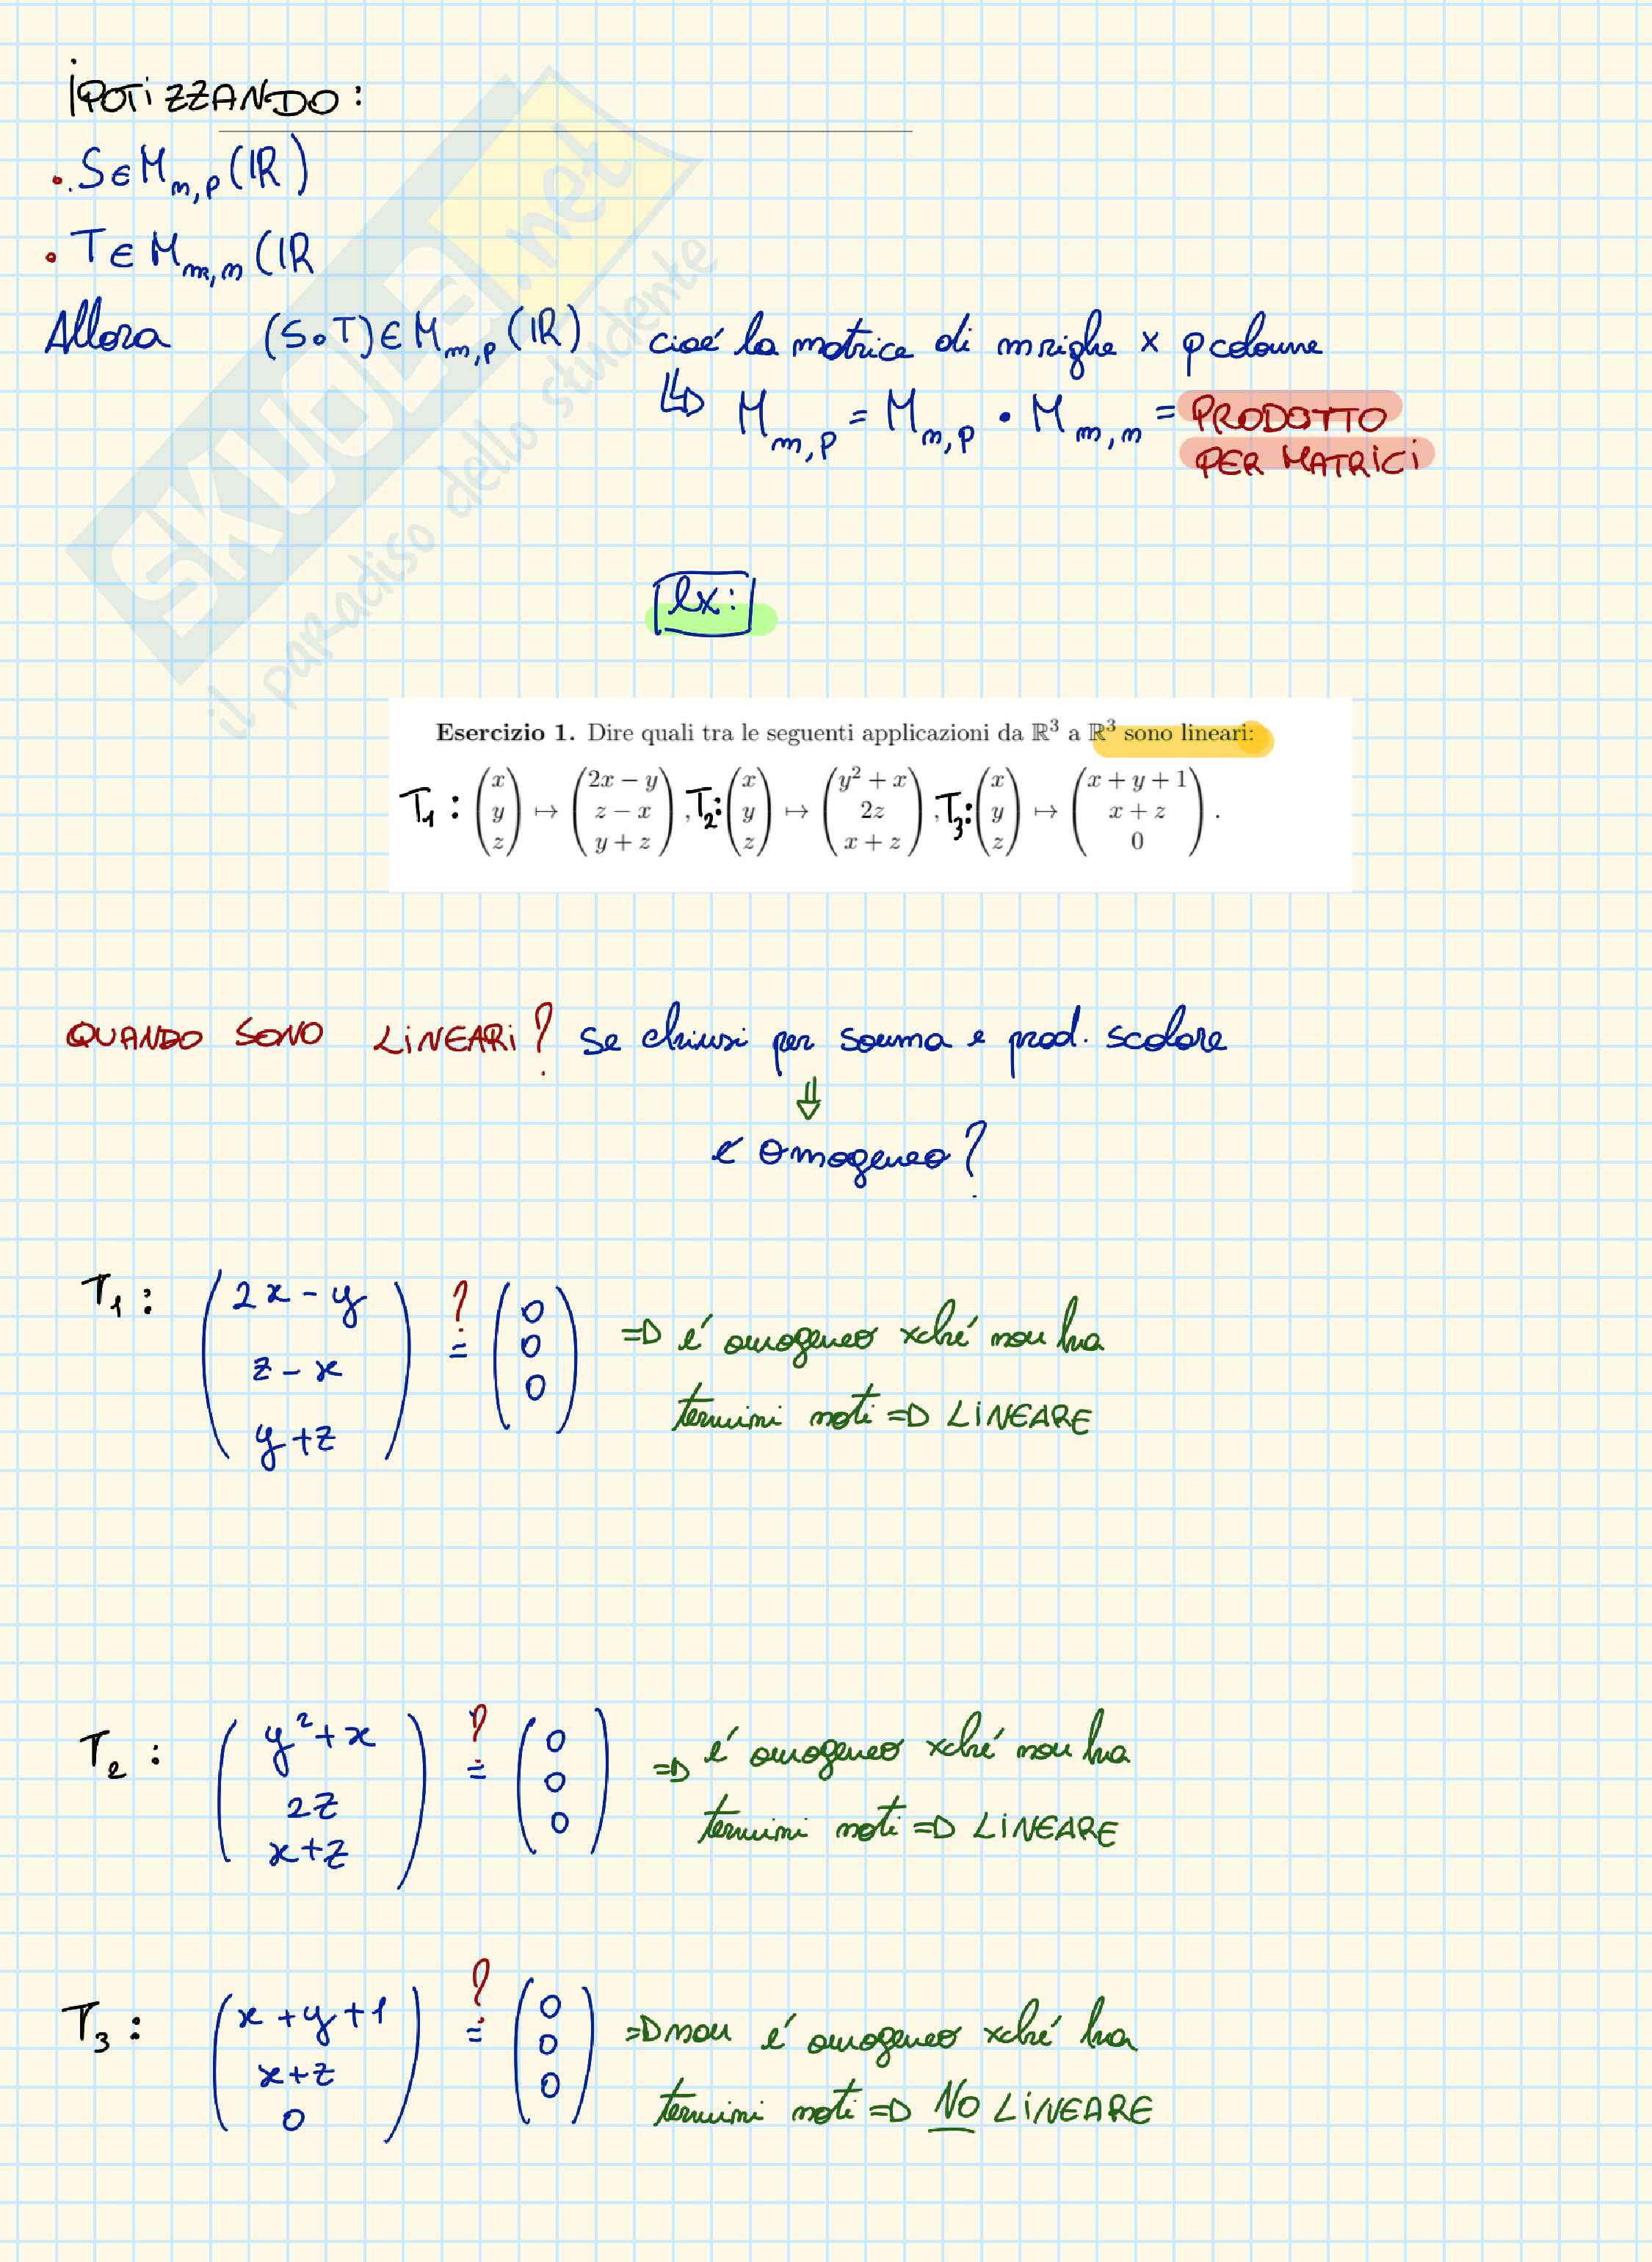 IPOTIZZANDO:
. S ∈ M_{n,p} (ℝ)
. T ∈ M_{m,n} (ℝ
Allora (S∘T) ∈ M_{m,p} (ℝ) cioé la matrice di m righe x p colonne
↳ M_{m,p} = M_{n,p} · M_{m,n} = PRODOTTO
PER MATRICI
SKUOLA.net
il paradiso dello studente
ex:
Esercizio 1. Dire quali tra le seguenti applicazioni da ℝ³ a ℝ³ sono lineari:
T₁: (x y z) ↦ (2x − y, z − x, y + z), T₂: (x y z) ↦ (y² + x, 2z, x + z), T₃: (x y z) ↦ (x + y + 1, x + z, 0).
QUANDO SONO LINEARI? Se chiusi per somma e prod. scalare
⇓
é omogeneo?
T₁: (2x - y, z - x, y + z) ?= (0 0 0) => é omogeneo xché non ha
termini noti => LINEARE
T₂: (y² + x, 2z, x + z) ?= (0 0 0) => é omogeneo xché non ha
termini noti => LINEARE
T₃: (x + y + 1, x + z, 0) ?= (0 0 0) => non é omogeneo xché ha
termini noti => NO LINEARE